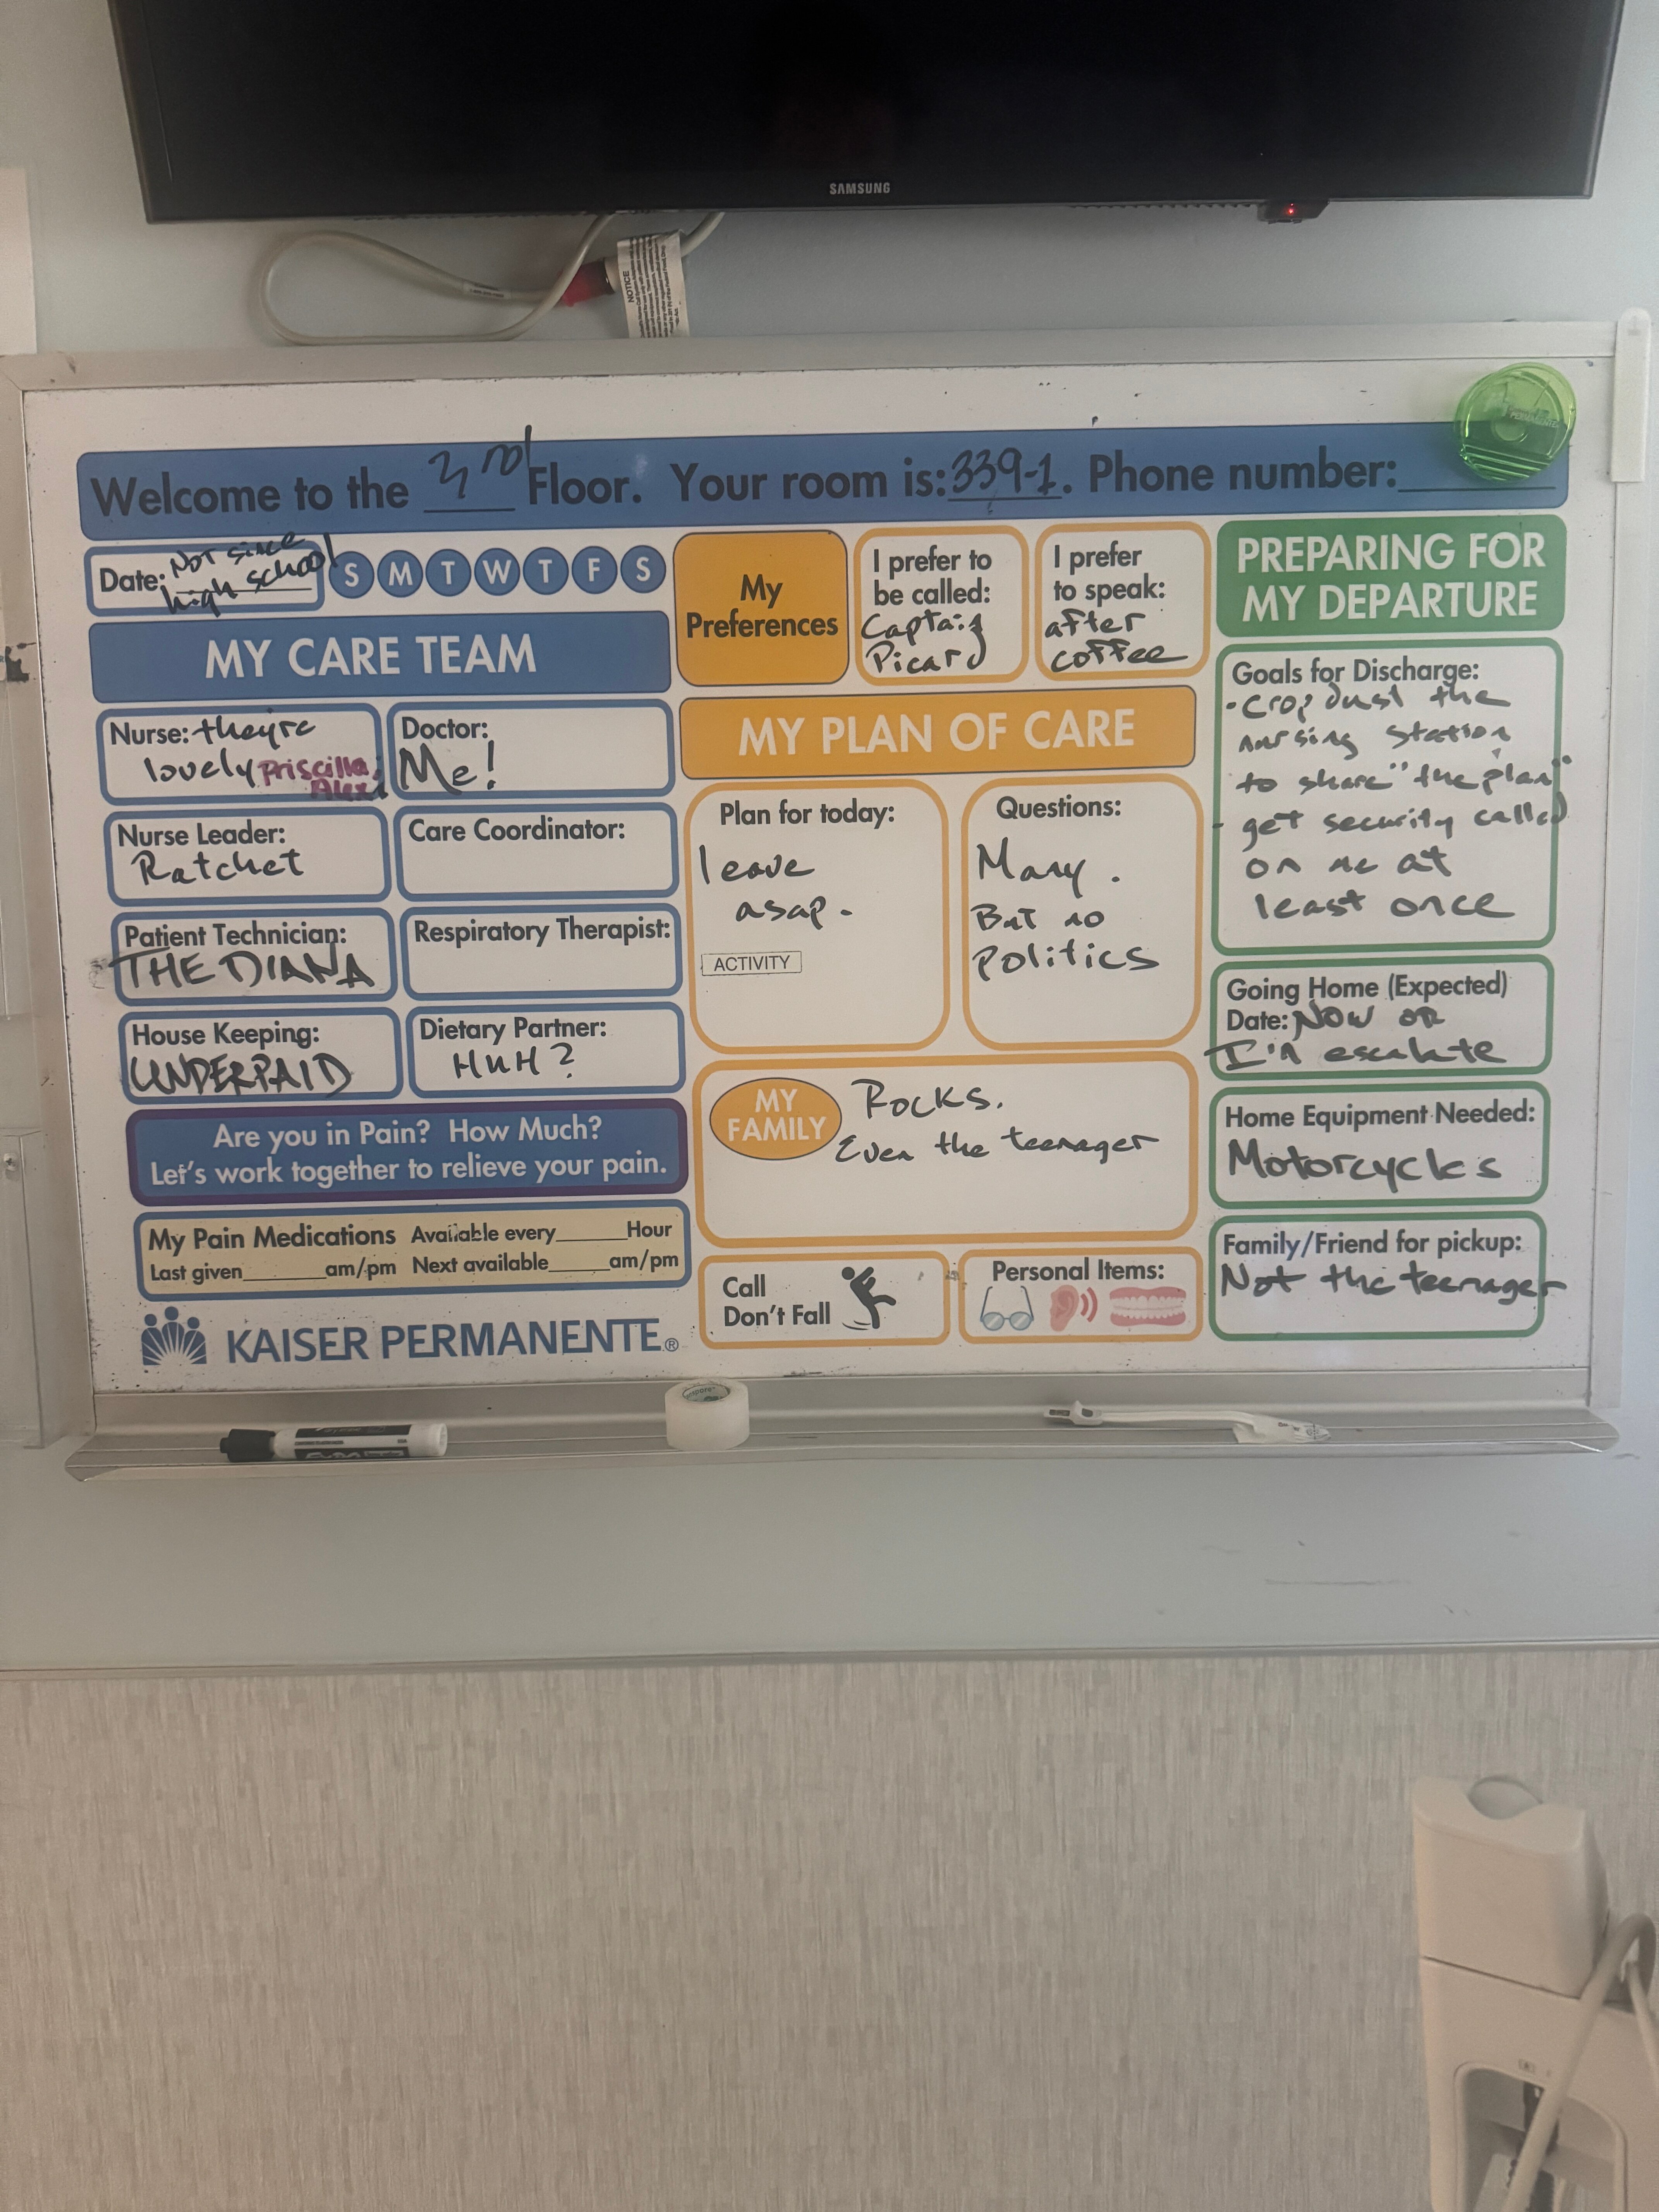 SAMSUNG
NOTICE
Welcome to the 3rd Floor. Your room is: 339-1. Phone number:
Date: Not since
high school
S M T W T F S
MY CARE TEAM
Nurse: theyre
lovely Priscilla,
Alex
Doctor:
Me!
Nurse Leader:
Ratchet
Care Coordinator:
Patient Technician:
THE DIANA
Respiratory Therapist:
House Keeping:
UNDERPAID
Dietary Partner:
HUH?
Are you in Pain? How Much?
Let's work together to relieve your pain.
My Pain Medications Available every______Hour
Last given______am/pm Next available_____am/pm
KAISER PERMANENTE®
My
Preferences
I prefer to
be called:
Captain
Picard
I prefer
to speak:
after
coffee
MY PLAN OF CARE
Plan for today:
leave
asap.
ACTIVITY
Questions:
Many.
But no
Politics
MY
FAMILY
Rocks.
Even the teenager
Call
Don't Fall
Personal Items:
PREPARING FOR
MY DEPARTURE
Goals for Discharge:
- crop dust the
nursing station
to share "the plan"
- get security called
on me at
least once
Going Home (Expected)
Date: NOW OR
I'm escalate
Home Equipment Needed:
Motorcycles
Family/Friend for pickup:
Not the teenager